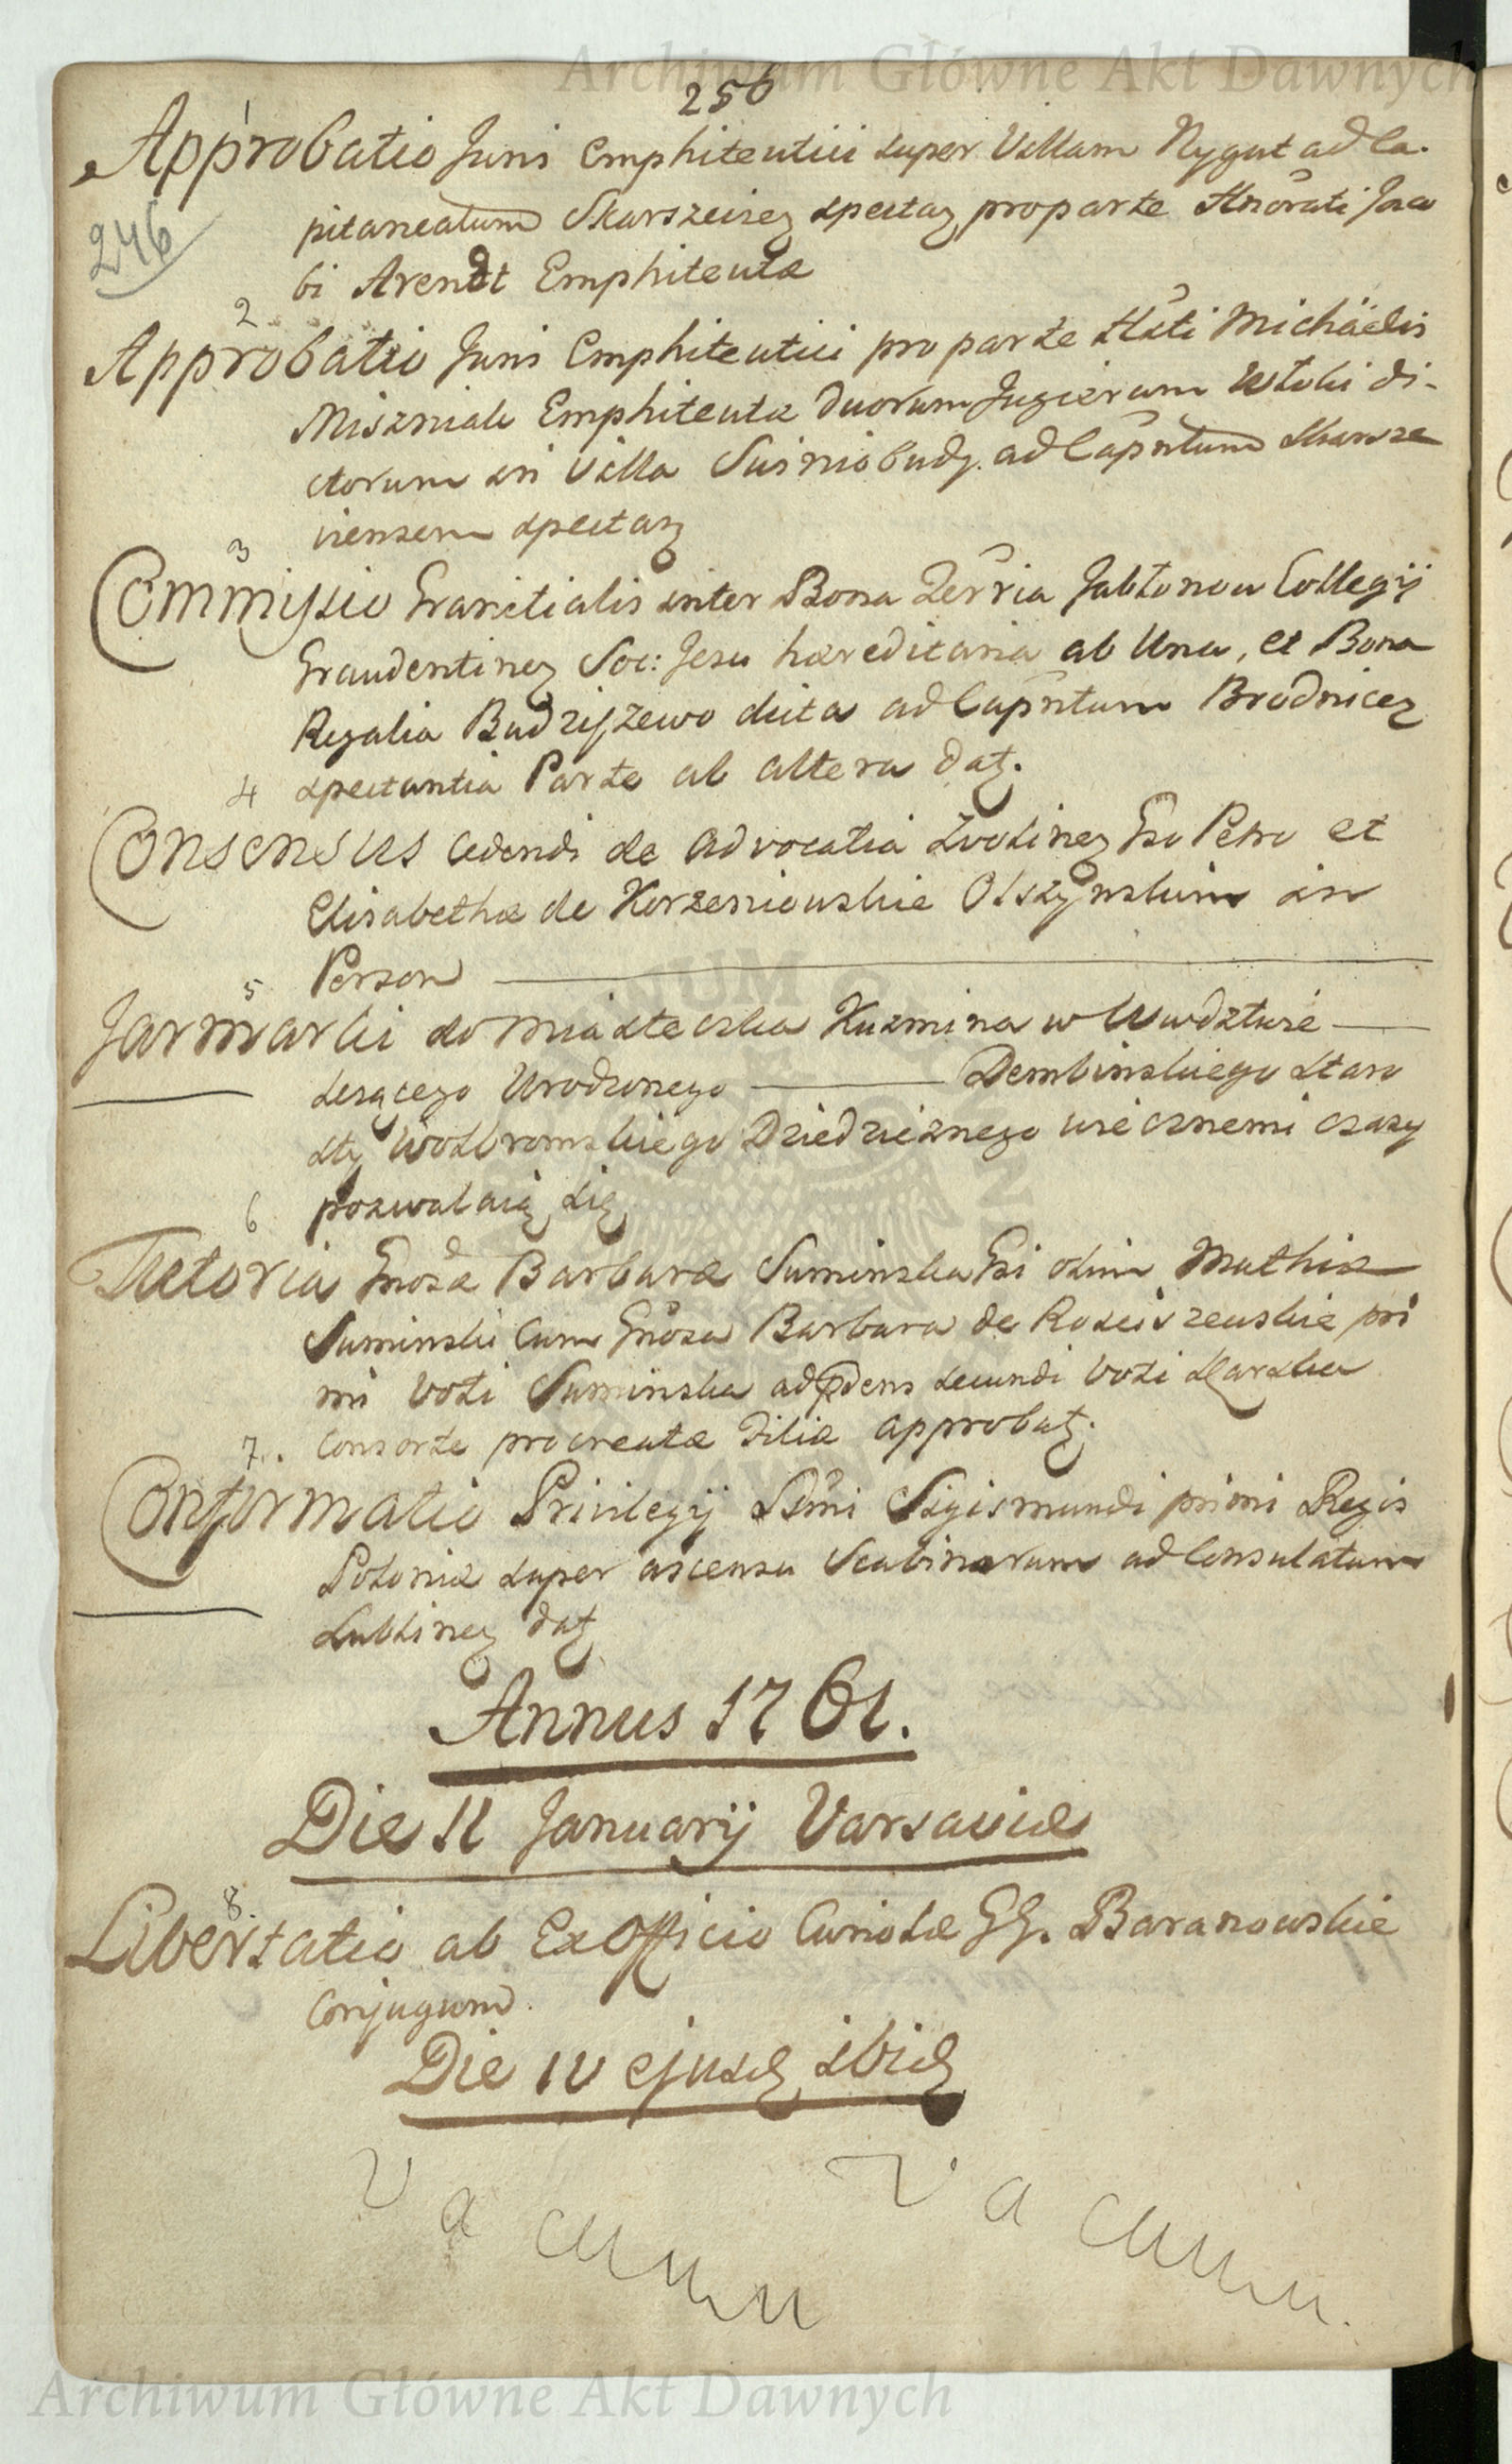 Archiwum Główne Akt Dawnych
256
1
Approbatio Juris Emphiteutici super Villam Nygut ad Ca-
246
pitaneatum Skarszeviez spectaz pro parte Honorati Jaco
bi Arendt Emphiteutæ
2
Approbatio Juris Emphiteutici pro parte Hsti Michäelis
Miszniak Emphiteutæ duorum Jugierum Wloki di-
ctorum in Villa Suiniobudy ad Capntum Skarsze
viensem spectaz
3
Commissio Granitialis inter Bona Terria Jabłonow Collegij
Graudentinez Soc: Jesu hæreditaria ab Una, et Bona
Regalia Budziszewo dicta ad Capntum Brodnicez
4 spectantia Parte ab altera datz.
Consensus cedendi de advocatia Zwolinez Gso Petro et
Elisabethæ de Korzeniowskie Olszynskim in
Person
5
Jarmarki do miasteczka Kuzmina w Wwdztwie
lesącego Urodzonego Dembinskiego Staro
sty Wolbromskiego Dziedzicznego wiecznemi czasy
6 pozwalaią się
Tutoria Gnosæ Barbaræ Suminska Gsi olim Mathiæ
Suminski cum Gnosa Barbara de Rosciszewskie pri
mi Voti Suminska ad pdens secundi Voti Karska
7. Consorte procreatæ Filiæ approbatz.
Confirmatio Privilegij Ssmi Sigismundi primi Regis
Poloniæ super ascensu Scabinorum ad Consulatum
Lublinez datz
Annus 1761.
Die 11 Januarij Varsaviæ
8.
Libertatio ab Ex Officio Curiolæ GG. Baranowskie
Conjugum.
Die 10 ejusd ibid
Vacuum Vacuum.
Archiwum Główne Akt Dawnych